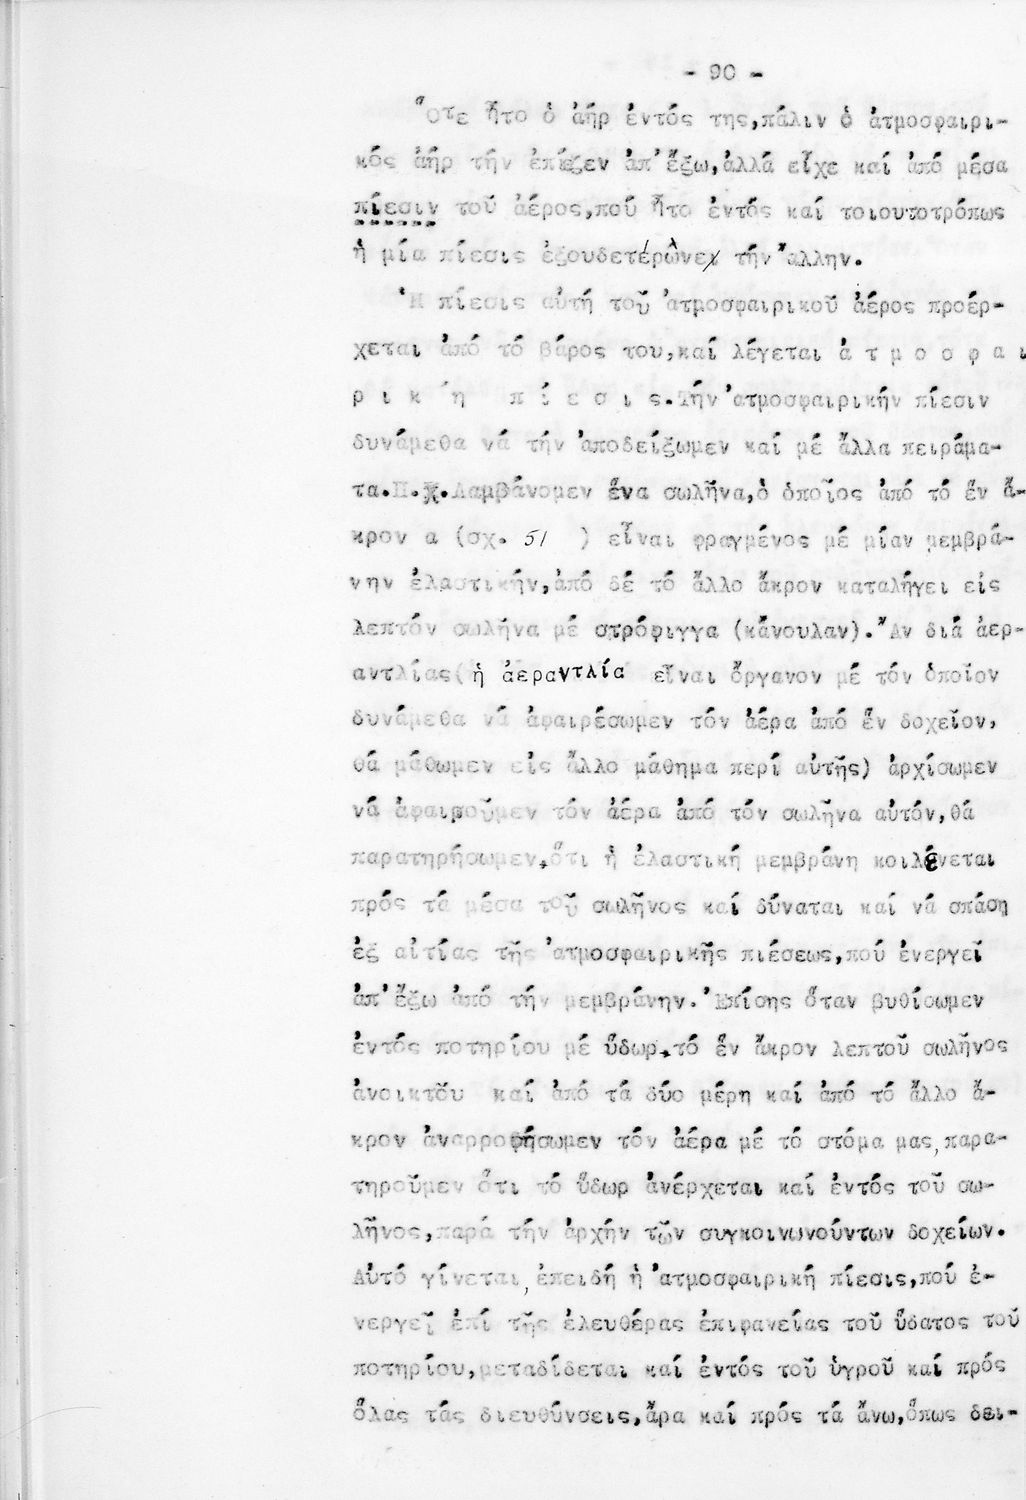 - 90 -
Ὅτε ἦτο ὁ ἀήρ ἐντός της,πάλιν ὁ ἀτμοσφαιρι-
κός ἀήρ τήν ἐπίεζεν ἀπ'ἔξω,ἀλλά εἶχε καί ἀπό μέσα
πίεσιν τοῦ ἀέρος,πού ἦτο ἐντός καί τοιουτοτρόπως
ἡ μία πίεσις ἐξουδετέρωνε τήν ἄλλην.
Ἡ πίεσις αὐτή τοῦ ἀτμοσφαιρικοῦ ἀέρος προέρ-
χεται ἀπό τό βάρος του,καί λέγεται ἀ τ μ ο σ φ α ι
ρ ι κ ή π ί ε σ ι ς.Τήν ἀτμοσφαιρικήν πίεσιν
δυνάμεθα νά τήν ἀποδείξωμεν καί μέ ἄλλα πειράμα-
τα.Π.χ.Λαμβάνομεν ἕνα σωλῆνα,ὁ ὁποῖος ἀπό τό ἕν ἄ-
κρον α (σχ. 51 ) εἶναι φραγμένος μέ μίαν μεμβρά-
νην ἐλαστικήν,ἀπό δέ τό ἄλλο ἄκρον καταλήγει εἰς
λεπτόν σωλῆνα μέ στρόφιγγα (κάνουλαν).Ἄν διά ἀερ-
αντλίας(ἡ ἀεραντλία εἶναι ὄργανον μέ τόν ὁποῖον
δυνάμεθα νά ἀφαιρέσωμεν τόν ἀέρα ἀπό ἕν δοχεῖον,
θά μάθωμεν εἰς ἄλλο μάθημα περί αὐτῆς) ἀρχίσωμεν
νά ἀφαιροῦμεν τόν ἀέρα ἀπό τόν σωλῆνα αὐτόν,θά
παρατηρήσωμεν,ὅτι ἡ ἐλαστική μεμβράνη κοιλένεται
πρός τά μέσα τοῦ σωλῆνος καί δύναται καί νά σπάση
ἐξ αἰτίας τῆς ἀτμοσφαιρικῆς πιέσεως,πού ἐνεργεῖ
ἀπ'ἔξω ἀπό τήν μεμβράνην.Ἐπίσης ὅταν βυθίσωμεν
ἐντός ποτηρίου μέ ὕδωρ,τό ἕν ἄκρον λεπτοῦ σωλῆνος
ἀνοικτοῦ καί ἀπό τά δύο μέρη καί ἀπό τό ἄλλο ἄ-
κρον ἀναρροφήσωμεν τόν ἀέρα μέ τό στόμα μας,παρα-
τηροῦμεν ὅτι τό ὕδωρ ἀνέρχεται καί ἐντός τοῦ σω-
λῆνος,παρά τήν ἀρχήν τῶν συγκοινωνούντων δοχείων.
Αὐτό γίνεται,ἐπειδή ἡ ἀτμοσφαιρική πίεσις,πού ἐ-
νεργεῖ ἐπί τῆς ἐλευθέρας ἐπιφανείας τοῦ ὕδατος τοῦ
ποτηρίου,μεταδίδεται καί ἐντός τοῦ ὑγροῦ καί πρός
ὅλας τάς διευθύνσεις,ἄρα καί πρός τά ἄνω,ὅπως δει-